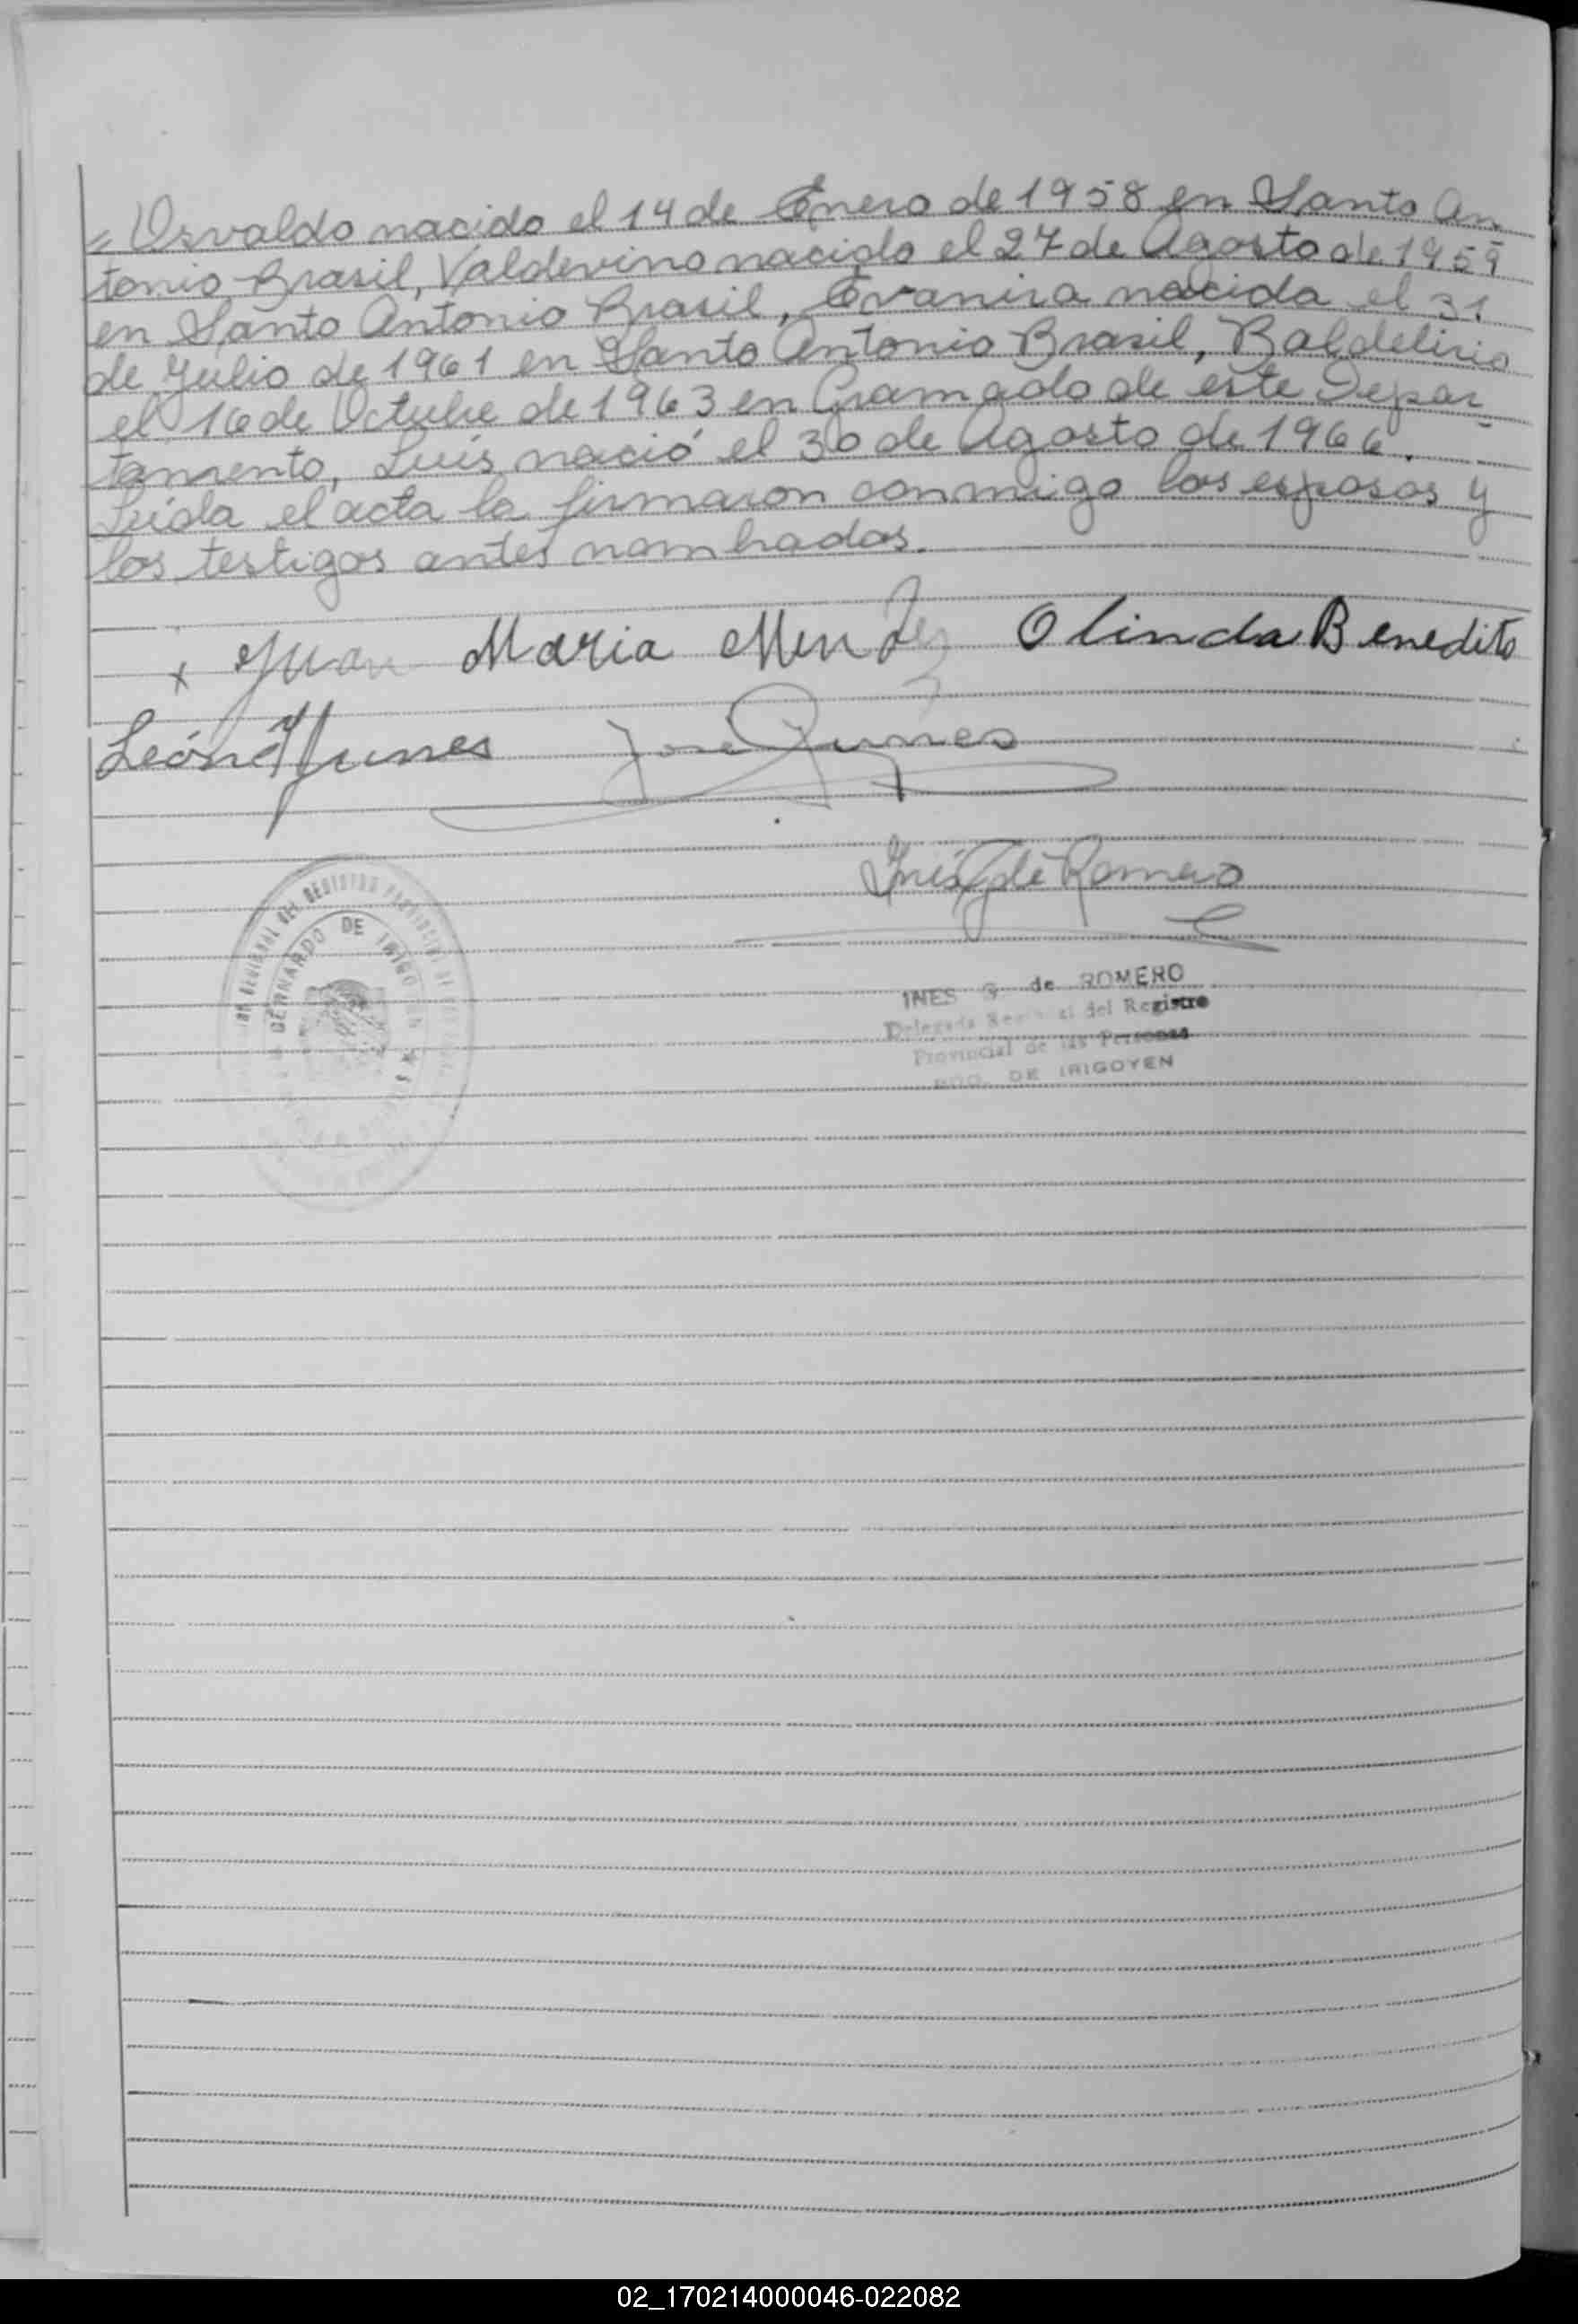 = Osvaldo nacido el 14 de Enero de 1958 en Santo An
tonio Brasil, Valdevino nacido el 27 de Agosto de 1959
en Santo Antonio Brasil, Evanira nacida el 31
de Julio de 1961 en Santo Antonio Brasil, Baldelirio
el 16 de Octubre de 1963 en Gramado de este Depar_
tamento, Luis nació el 30 de Agosto de 1966.
Leída el acta la firmaron conmigo los esposos y
los testigos antes nombrados.
x Juan Maria Mendez Olinda Benedito
León Yunes José Yunes
Inés G de Romero
DEL REGISTRO
BERNARDO DE IRIGOYEN
INES G. de ROMERO
Delegada Regional del Registro
Provincial de las Personas
BDO. DE IRIGOYEN
02_170214000046-022082